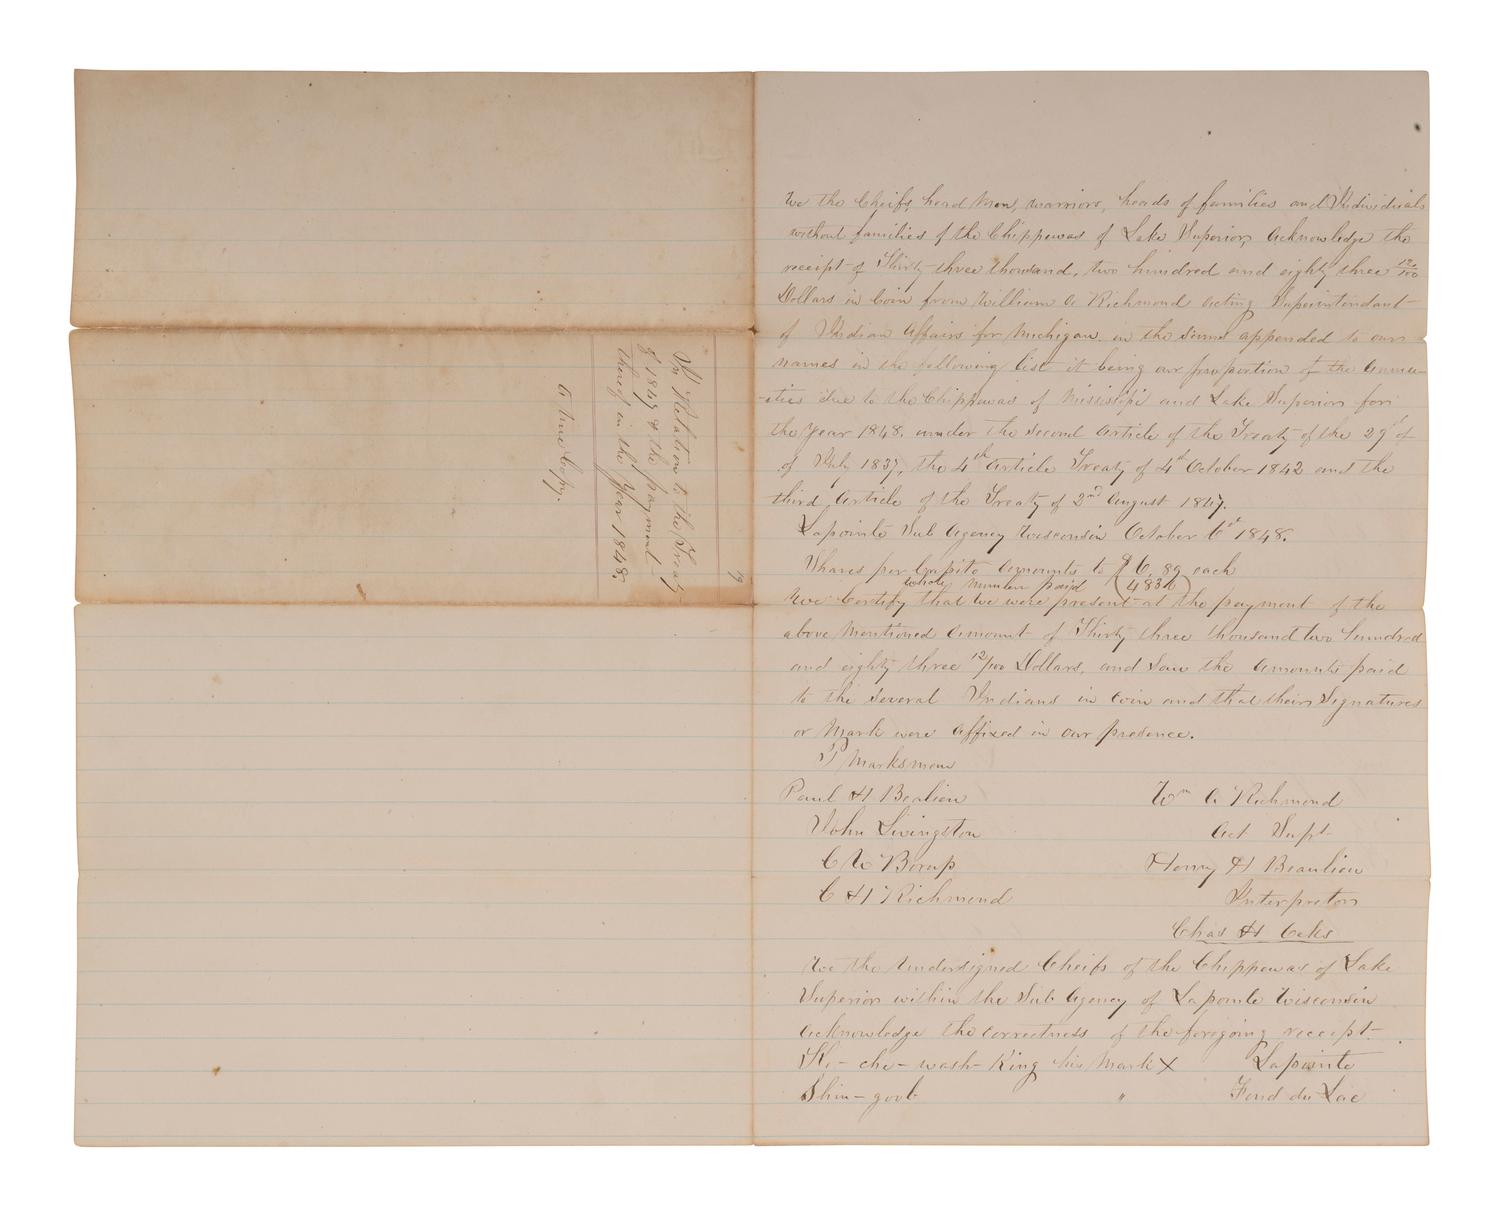 In Relation to the Treaty
of 1847 & the payment
thereof in the Year 1848.
A true Copy.
We the Cheifs, head Men, warriors, heads of families and Individuals
without families of the Chippewas of Lake Superior, Acknowledge the
receipt of Thirty three thousand, two hundred and eighty three 12/100
Dollars in Coin from William A Richmond Acting Superintendant
of Indian Affairs for Michigan in the sums appended to our
names in the following list it being our proportion of the Annui-
-ties due to the Chippewas of Mississippi and Lake Superior for
the Year 1848, under the second Article of the Treaty of the 29th of
of July 1837, the 4th Article Treaty of 4th October 1842 and the
third Article of the Treaty of 2nd August 1847.
Lapointe Sub Agency Wisconsin October 6th 1848.
Shares per Capita Amounts to $6.89 each
whole Number paid (4832)
We Certify that we were present at the payment of the
above Mentioned Amount of Thirty three thousand two hundred
and eighty three 12/100 Dollars, and Saw the Amounts paid
to the several Indians in Coin and that their Signatures
or Mark were affixed in our presence.
P Marksman
Paul H Bealieu Wm A Richmond
John Livingston Act Supt
C W Borup Henry H Beaulieu
C H Richmond Interpretor
Chas H Oaks
We the Undersigned Cheifs of the Chippewas of Lake
Superior within the Sub Agency of Lapointe Wisconsin
Acknowledge the correctness of the foregoing receipt.
Ki-che-wash-King his Mark X Lapointe
Shin-goob " Fond du Lac